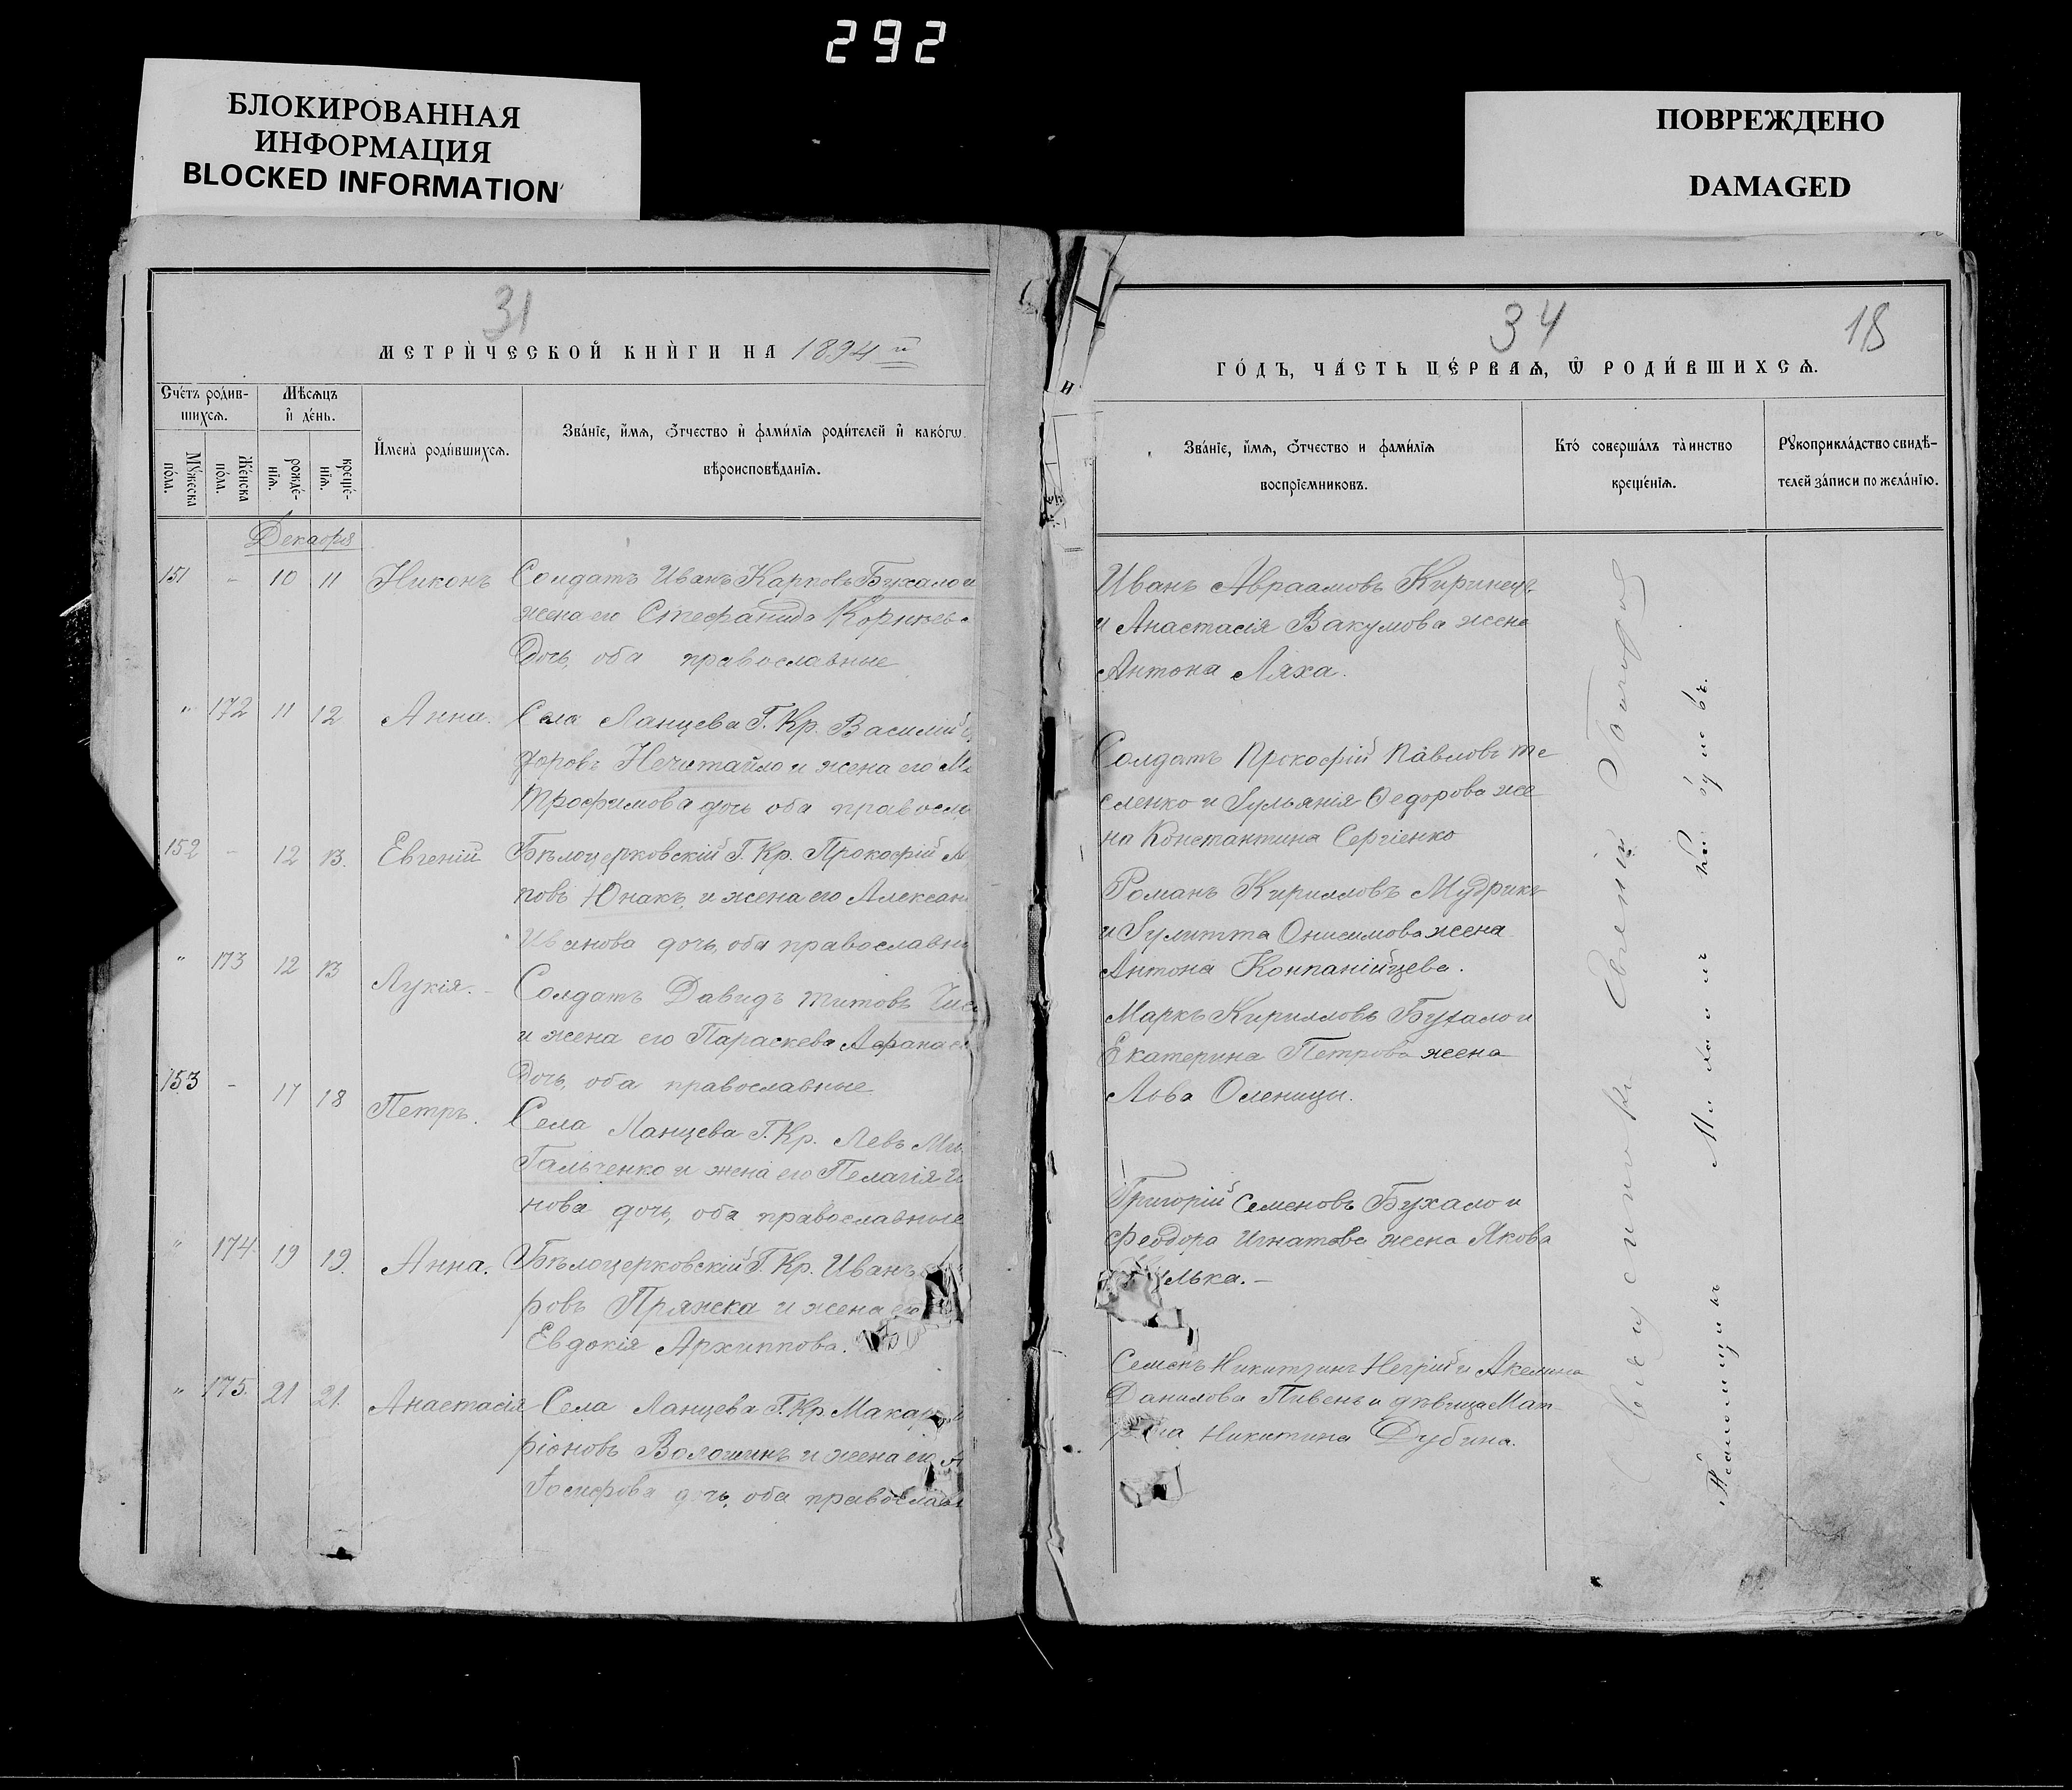 292
БЛОКИРОВАННАЯ
ИНФОРМАЦИЯ
BLOCKED INFORMATION
ПОВРЕЖДЕНО
DAMAGED
31
МЕТРИ́ЧЕСКОЙ КНИ́ГИ НА 1894 й
Сче́тъ роди́в-
шихсѧ.
Мѣсѧцъ
и҆ де́нь.
Мꙋ́жеска
по́ла.
Же́нска
по́ла.
рожде́-
нїѧ.
креще́-
нїѧ.
И҆мена̀ роди́вшихсѧ.
Зва́нїе, и҆́мѧ, ѻ҆́тчество и҆ фами́лїѧ роди́телей и҆ како́гѡ
вѣроисповѣ́данїѧ.
Декабря
151 - 10 11 Никонъ Солдатъ Иванъ Карповъ Бухало и
жена его Стефанида Корнѣева
дочь, оба православные
" 172 11 12 Анна. Села Ланцева Г. Кр. Василій
доровъ Нечитайло и жена его
Трофимова дочь оба правосла
152 - 12 13. Евгеній Бѣлоцерковскій Г. Кр. Прокофій
повъ Юнакъ, и жена его Алексан
Иванова дочь, оба православны
" 173 12 13 Лукія. - Солдатъ Давидъ Титовъ
и жена его Параскева Афанась
дочь, оба православные
153 - 17 18 Петръ. Села Ланцева Г. Кр. Левъ
Гальченко и жена его Пелагія
нова дочь, оба православные
" 174. 19 19. Анна. Бѣлоцерковскій Г. Кр. Иванъ
ровъ Пряжка и жена его
Евдокія Архиппова.
" 175. 21 21. Анастасія Села Ланцева Г. Кр. Макарій
ріоновъ Волошинъ и жена его
Іосифова дочь, оба православн
34
18
ГО́ДЪ, ЧА́СТЬ ПЕ́РВАѦ, Ѡ҆ РОДИ́ВШИХСѦ.
Зва́нїе, и҆́мѧ, ѻ҆́тчество и фами́лїѧ
воспрїе́мниковъ.
Кто́ соверша́лъ та́инство
креще́нїѧ.
Рꙋкоприкла́дство свидѣ́-
телей за́писи по жела́нїю.
Иванъ Авраамовъ Киринецъ
и Анастасія Вакумова жена
Антона Ляха.
Солдатъ Прокофій Павловъ Те
сленко и Іульянія Федорова же
на Константина Сергіенко
Романъ Кирилловъ Мудрикъ
и Іулитта Онисимова жена
Антона Компанійцева.
Маркъ Кирилловъ Бухало и
Екатерина Петрова жена
Льва Оленицы.
Григорій Семеновъ Бухало и
Феодора Игнатова жена Якова
лька. -
Семенъ Никитинъ Негрій и Акелина
Данилова Пивень и дѣвица Мат
на Никитина Дубина.
Священникъ Евгеній
Псаломщикъ